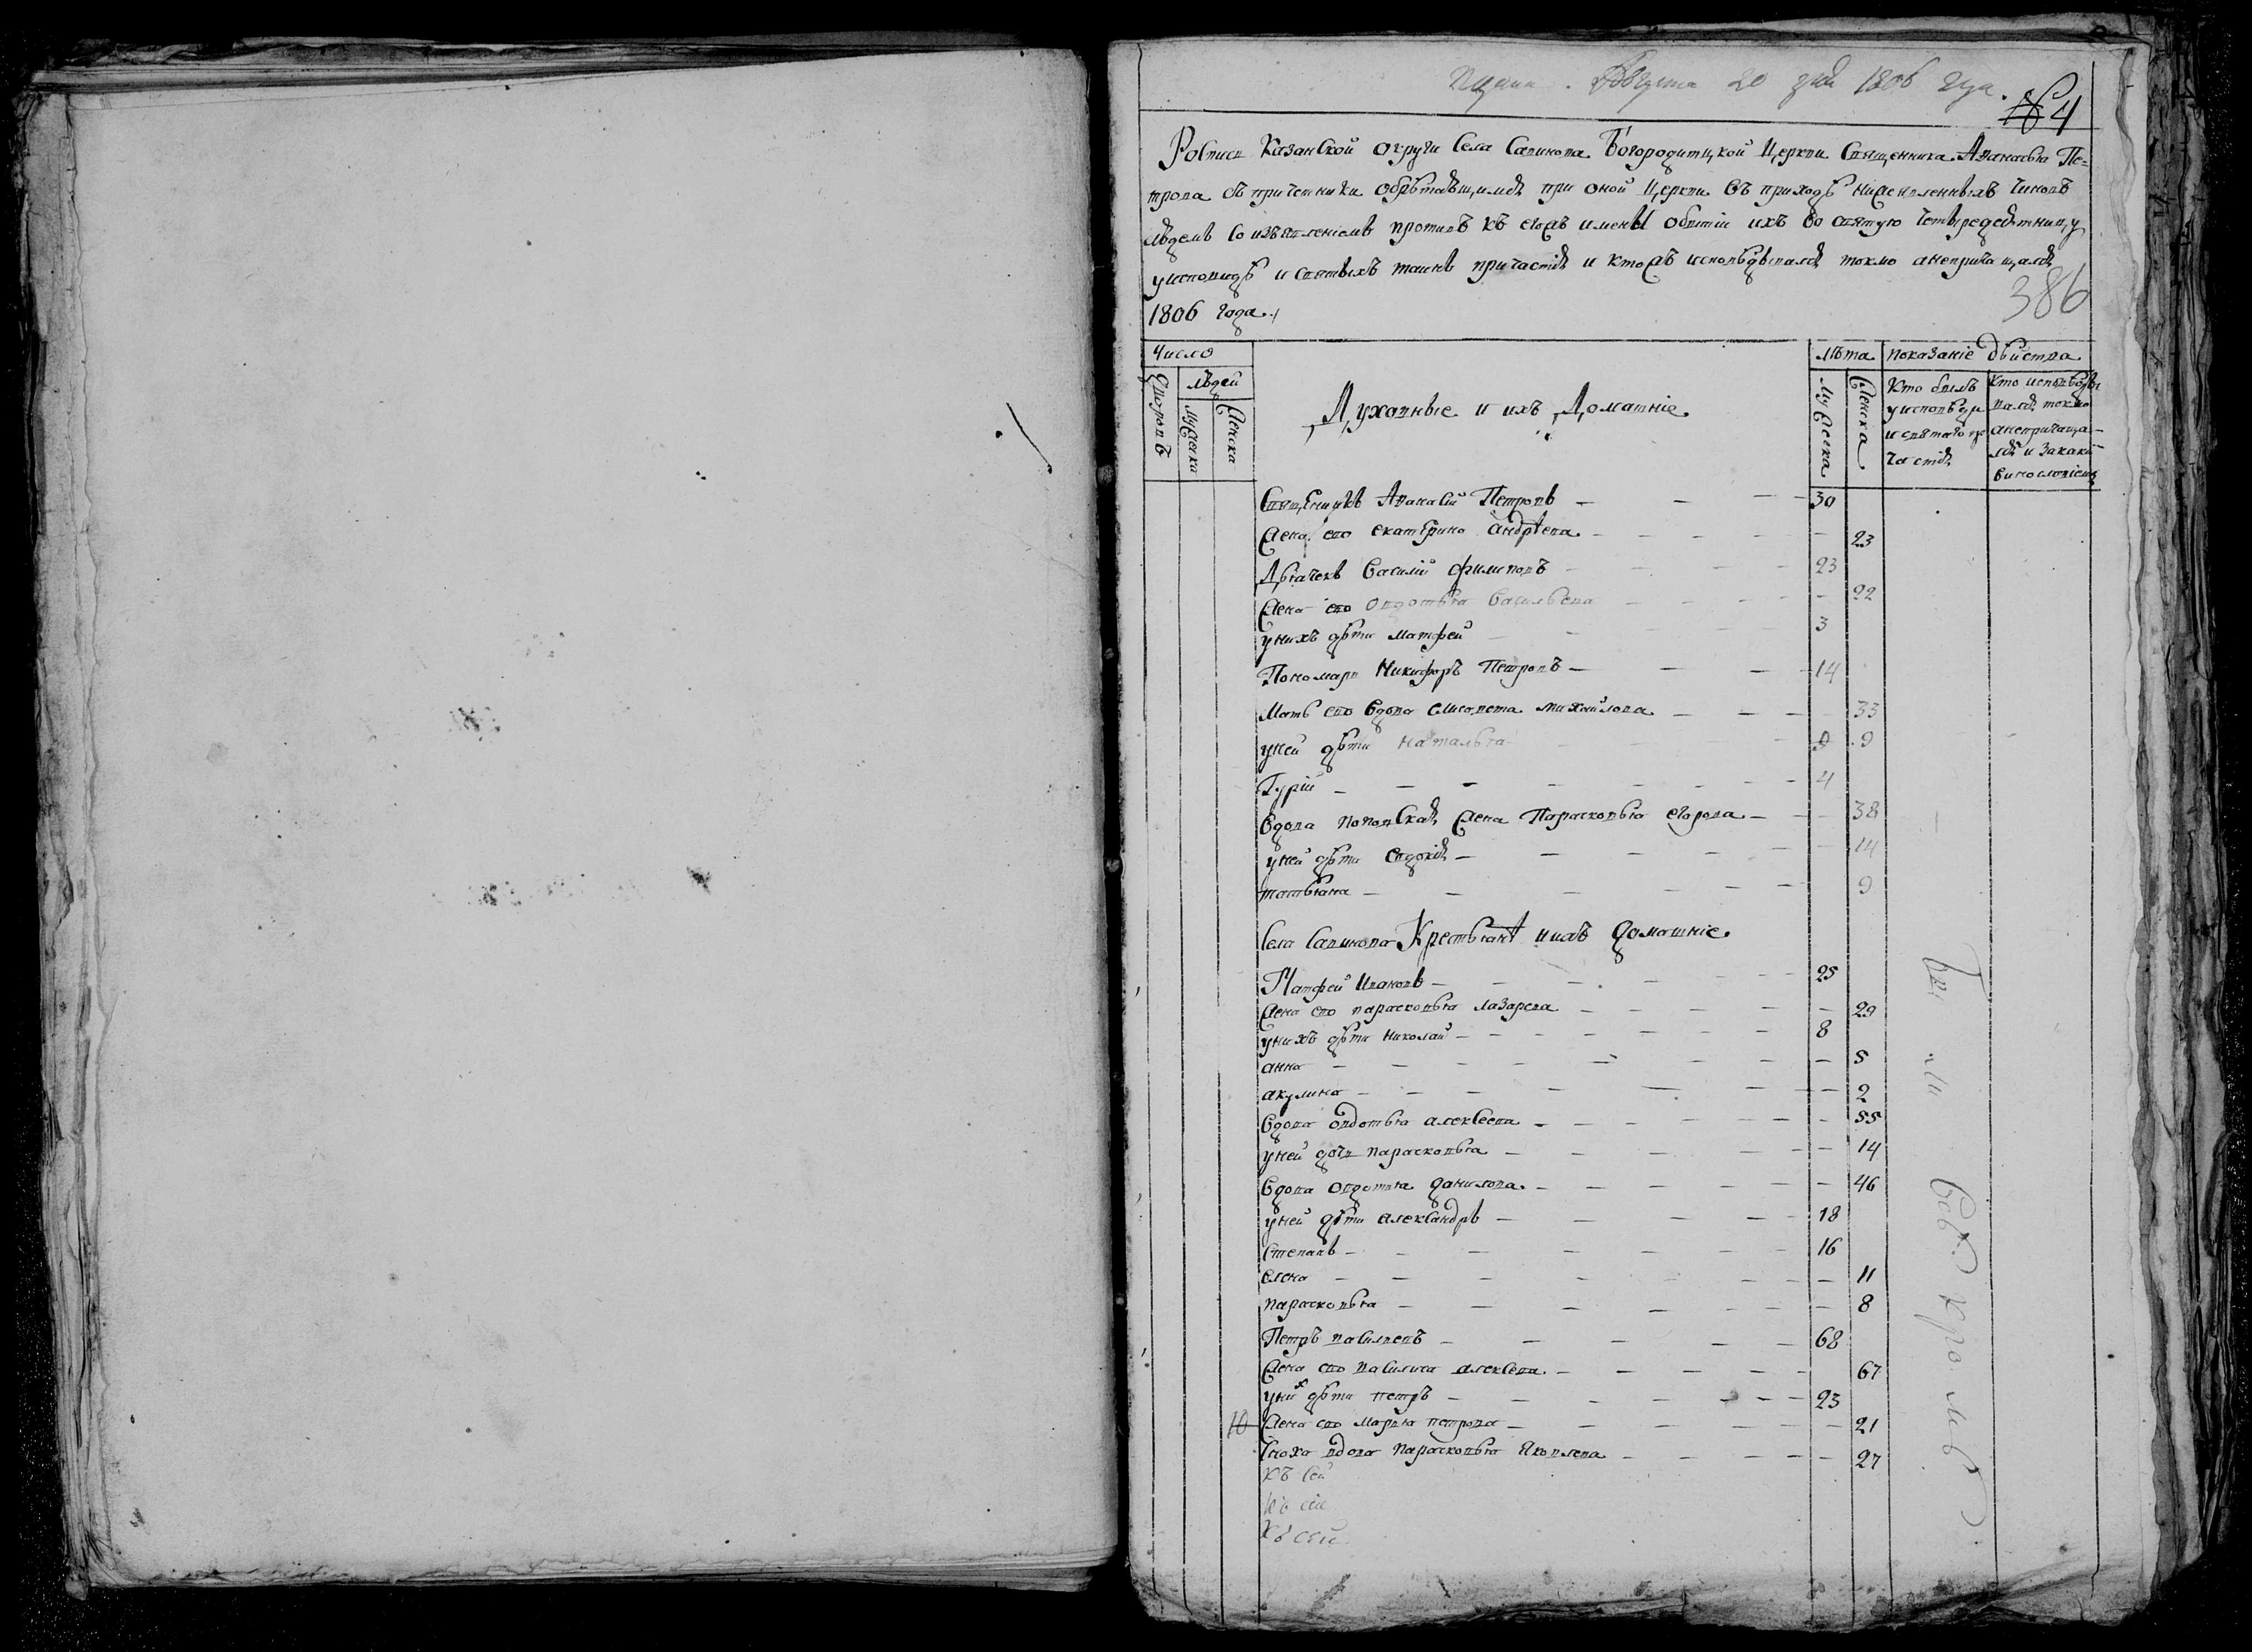 Августа 20 дня 1806 года.
№ 4
Роспись Казанской округи села Савинова Богородитцкой церкви священника Аѳанасья Пе-
трова съ причетники обрѣтающимся при оной церкви въ приходѣ нижеявленныхъ чиновъ
людемъ со изъявленіемъ противъ коегождъ имены о бытіи ихъ во святую четыредесятницу
у исповеди и святыхъ таинъ причастія и ктожъ исповѣдывался токмо а непричащался
386
1806 года.
Число
Дворовъ
людей
Мужеска
Женска
Духовные и ихъ Домашніе
Лѣта
Мужеска
Женска
Показаніе действа
Кто былъ
у исповеди
и святаго при
частія
Кто исповѣды
вался токмо
а непричаща-
лся и за каки
винословіемъ
Священникъ Аванасій Петровъ — 30
Жена ево Екатерина Андреева — 23
Дьячекъ Василій Филиповъ — 23
Жена ево Овдотья Васильева — 22
у нихъ дѣти Матфей — 3
Пономарь Никифоръ Петровъ — 14
Мать ево вдова Елисавета Михайлова — 33
у ней дѣти Наталья — 9 9
Гурій — 4
Вдова поповская жена Парасковья Егорова — 38
у ней дѣти Евдокія — 14
татьяна — 9
Села Савинова Крестьянѣ и ихъ домашніе
Матфей Ивановъ — 25
Жена ево парасковья Лазарева — 29
у нихъ дѣти Николай — 8
анна — 5
акулина — 2
Вдова овдотья алексеева — 55
у ней дочь парасковья — 14
Вдова овдотья данилова — 46
у ней дѣти александръ — 18
степанъ — 16
елена — 11
парасковья — 8
Петръ васильевъ — 68
Жена ево василиса алексѣева — 67
у них дѣти петръ — 23
10 Жена ево марья петрова — 21
Сноха вдова парасковья яковлева — 27
къ сей
къ сей
къ сей
Были все кроме